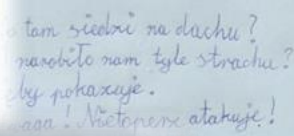 tam siedzi na dachu?
narobiło nam tyle strachu?
by pokazuje.
aaa! Nietoperz atakuje!